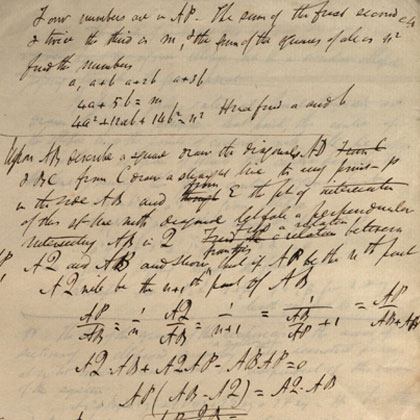 Four numbers are in AP. The sum of the first second
& twice the third is m, & the sum of the squares of all is n²
find the numbers
a, a+b a+2b a+3b
4a + 5b = m
4a² + 12ab + 14b² = n² Hence find a and b
Upon AB describe a square draw the diagonals AD
& BC from C draw a straight line to any point P
in the side AB and from E the pt of intersection
of this st line with diagonal let fall a perpendicular
intersecting AB in Q Find a relation between
AQ and AB and show that if AP be the nth part
AQ will be the n+1th part of AB
AP/AB = 1/n AQ/AB = 1/n+1 = 1/AB/AP + 1 = AP/AB+AP
AQ·AB + AQ·AP − AB·AP = 0
AP(AB − AQ) = AQ·AB